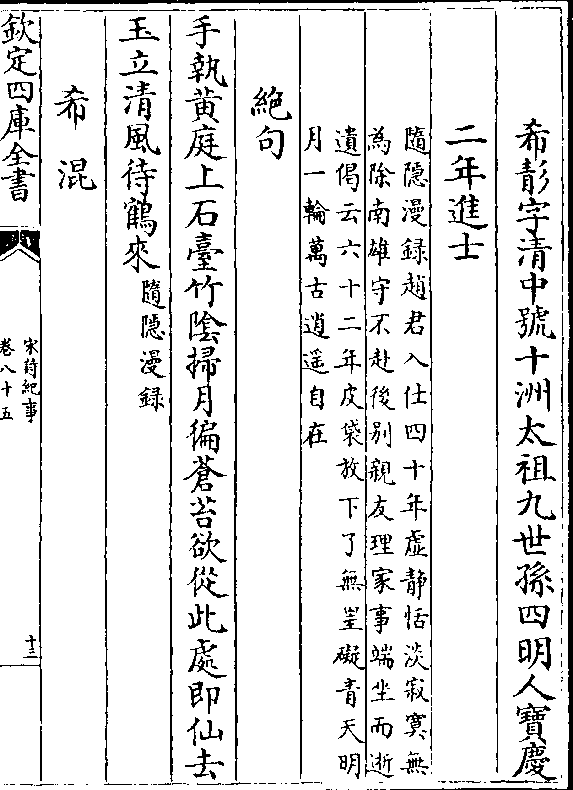 希彭字清中號十洲太祖九世孫四明人寶慶
二年進士
隨隱漫録趙君入仕四十年虛静恬淡寂寞無
為除南雄守不赴後别親友理家事端坐而逝
遺偈云六十二年皮袋放下了無罣礙青天明
月一輪萬古逍遥自在
絶句
手執黄庭上石臺竹陰掃月徧蒼苔欲從此處即仙去
玉立清風待鶴來隨隱漫録
希混
欽定四庫全書
宋詩紀事
卷八十五
十三